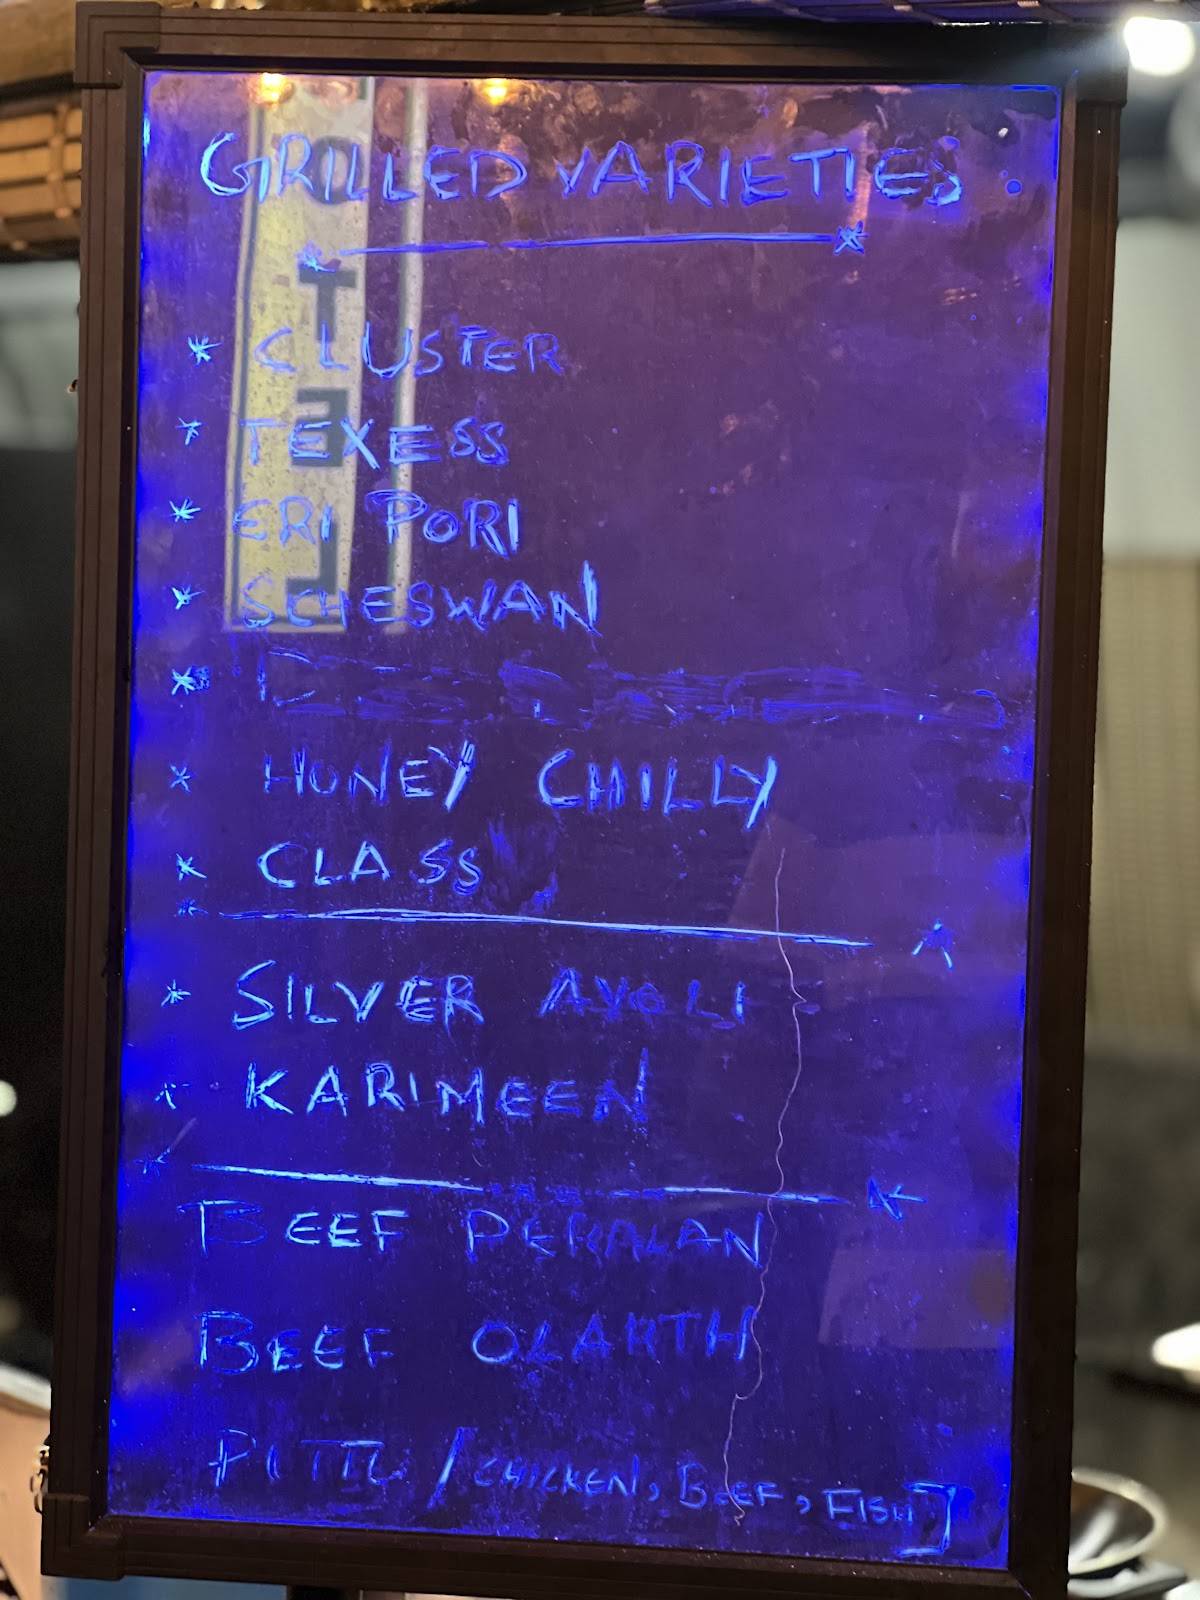 GRILLED VARIETIES.
* CLUSTER
* TEXESS
* ERI PORI
* SCHESWAN
*
* HONEY CHILLY
* CLASS
* SILVER AVOLI
* KARIMEEN
BEEF PERALAN
BEEF OLARTH
PUTTU / CHICKEN, BEEF, FISH]